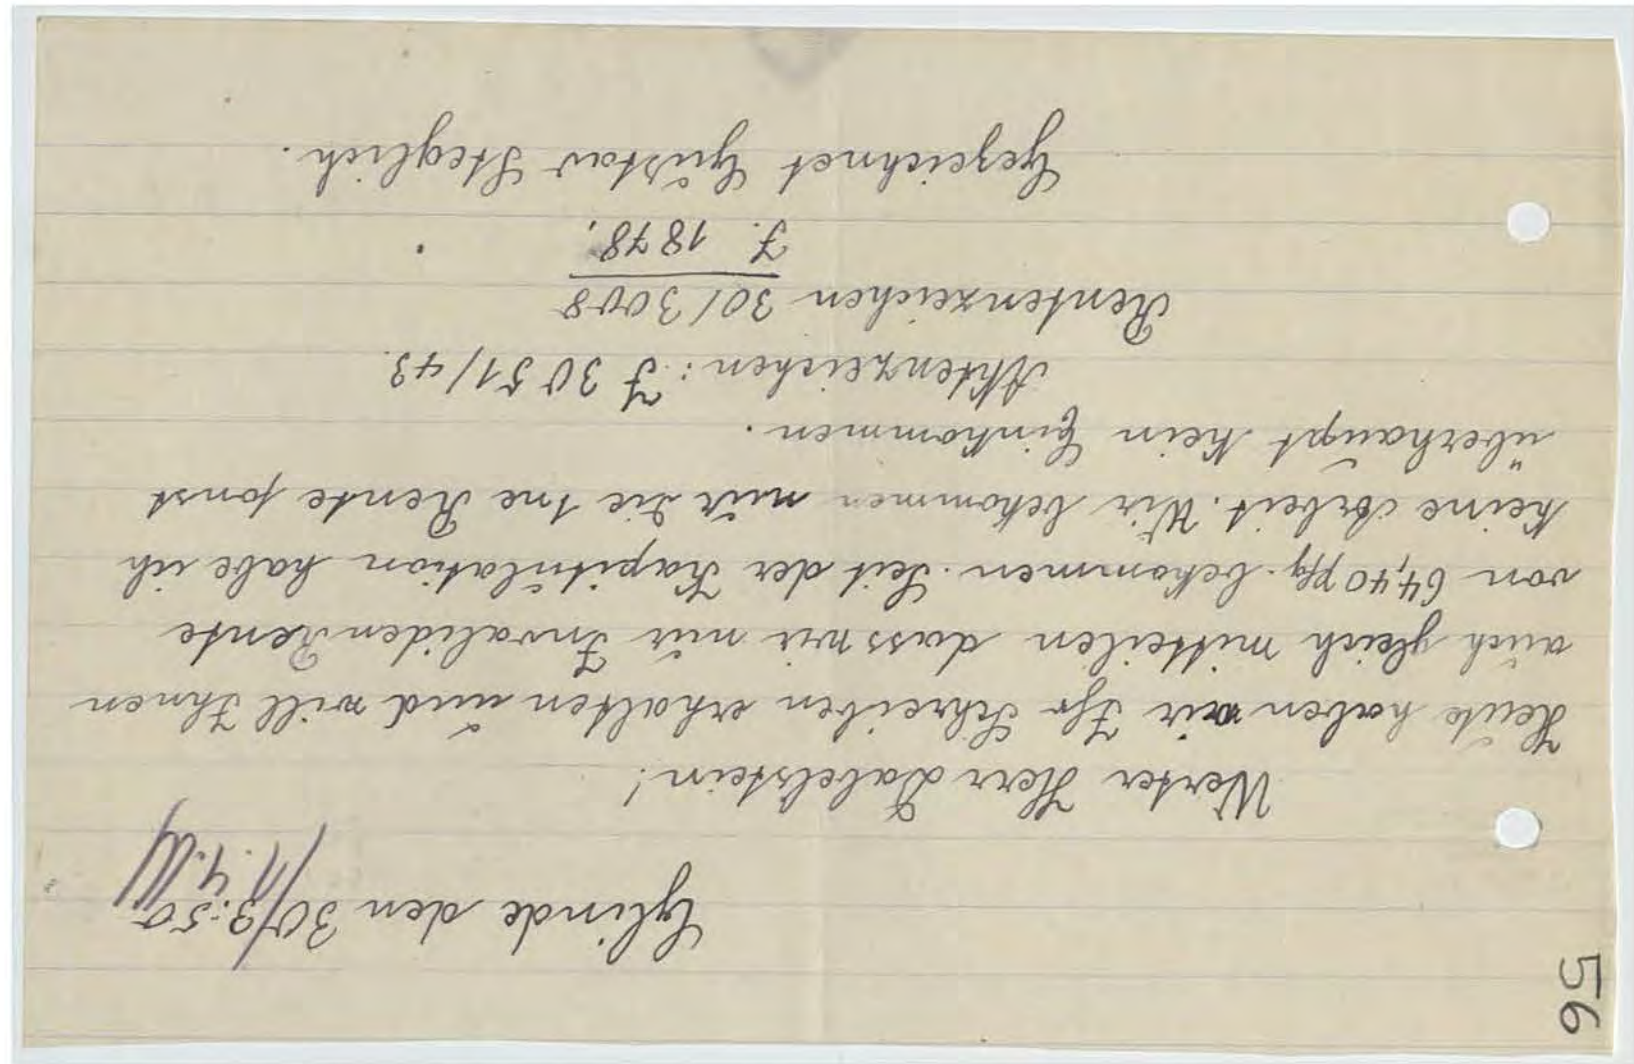 56
Glinde den 30/3.50
Werter Herr Dabelstein!
Heute haben wir Ihr Schreiben erhalten und will Ihnen
auch gleich mitteilen dass wir nur Invaliden Rente
von 64,40 pfg. bekommen. Seit der Kapitulation habe ich
keine Arbeit. Wir bekommen nur die 1ne Rente sonst
überhaupt kein Einkommen.
Aktenzeichen: J 3051/43.
Rentenzeichen 301/3008
J. 1878.
Gezeichnet Gustav Steglich.